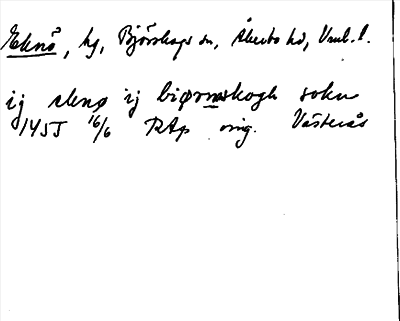 Eknö, hg, Björskogs sn, Åkerbo hd, Vml. l.
ij eknø ij biørnaskogh sokn
1455 16/6 RAp orig. Västerås